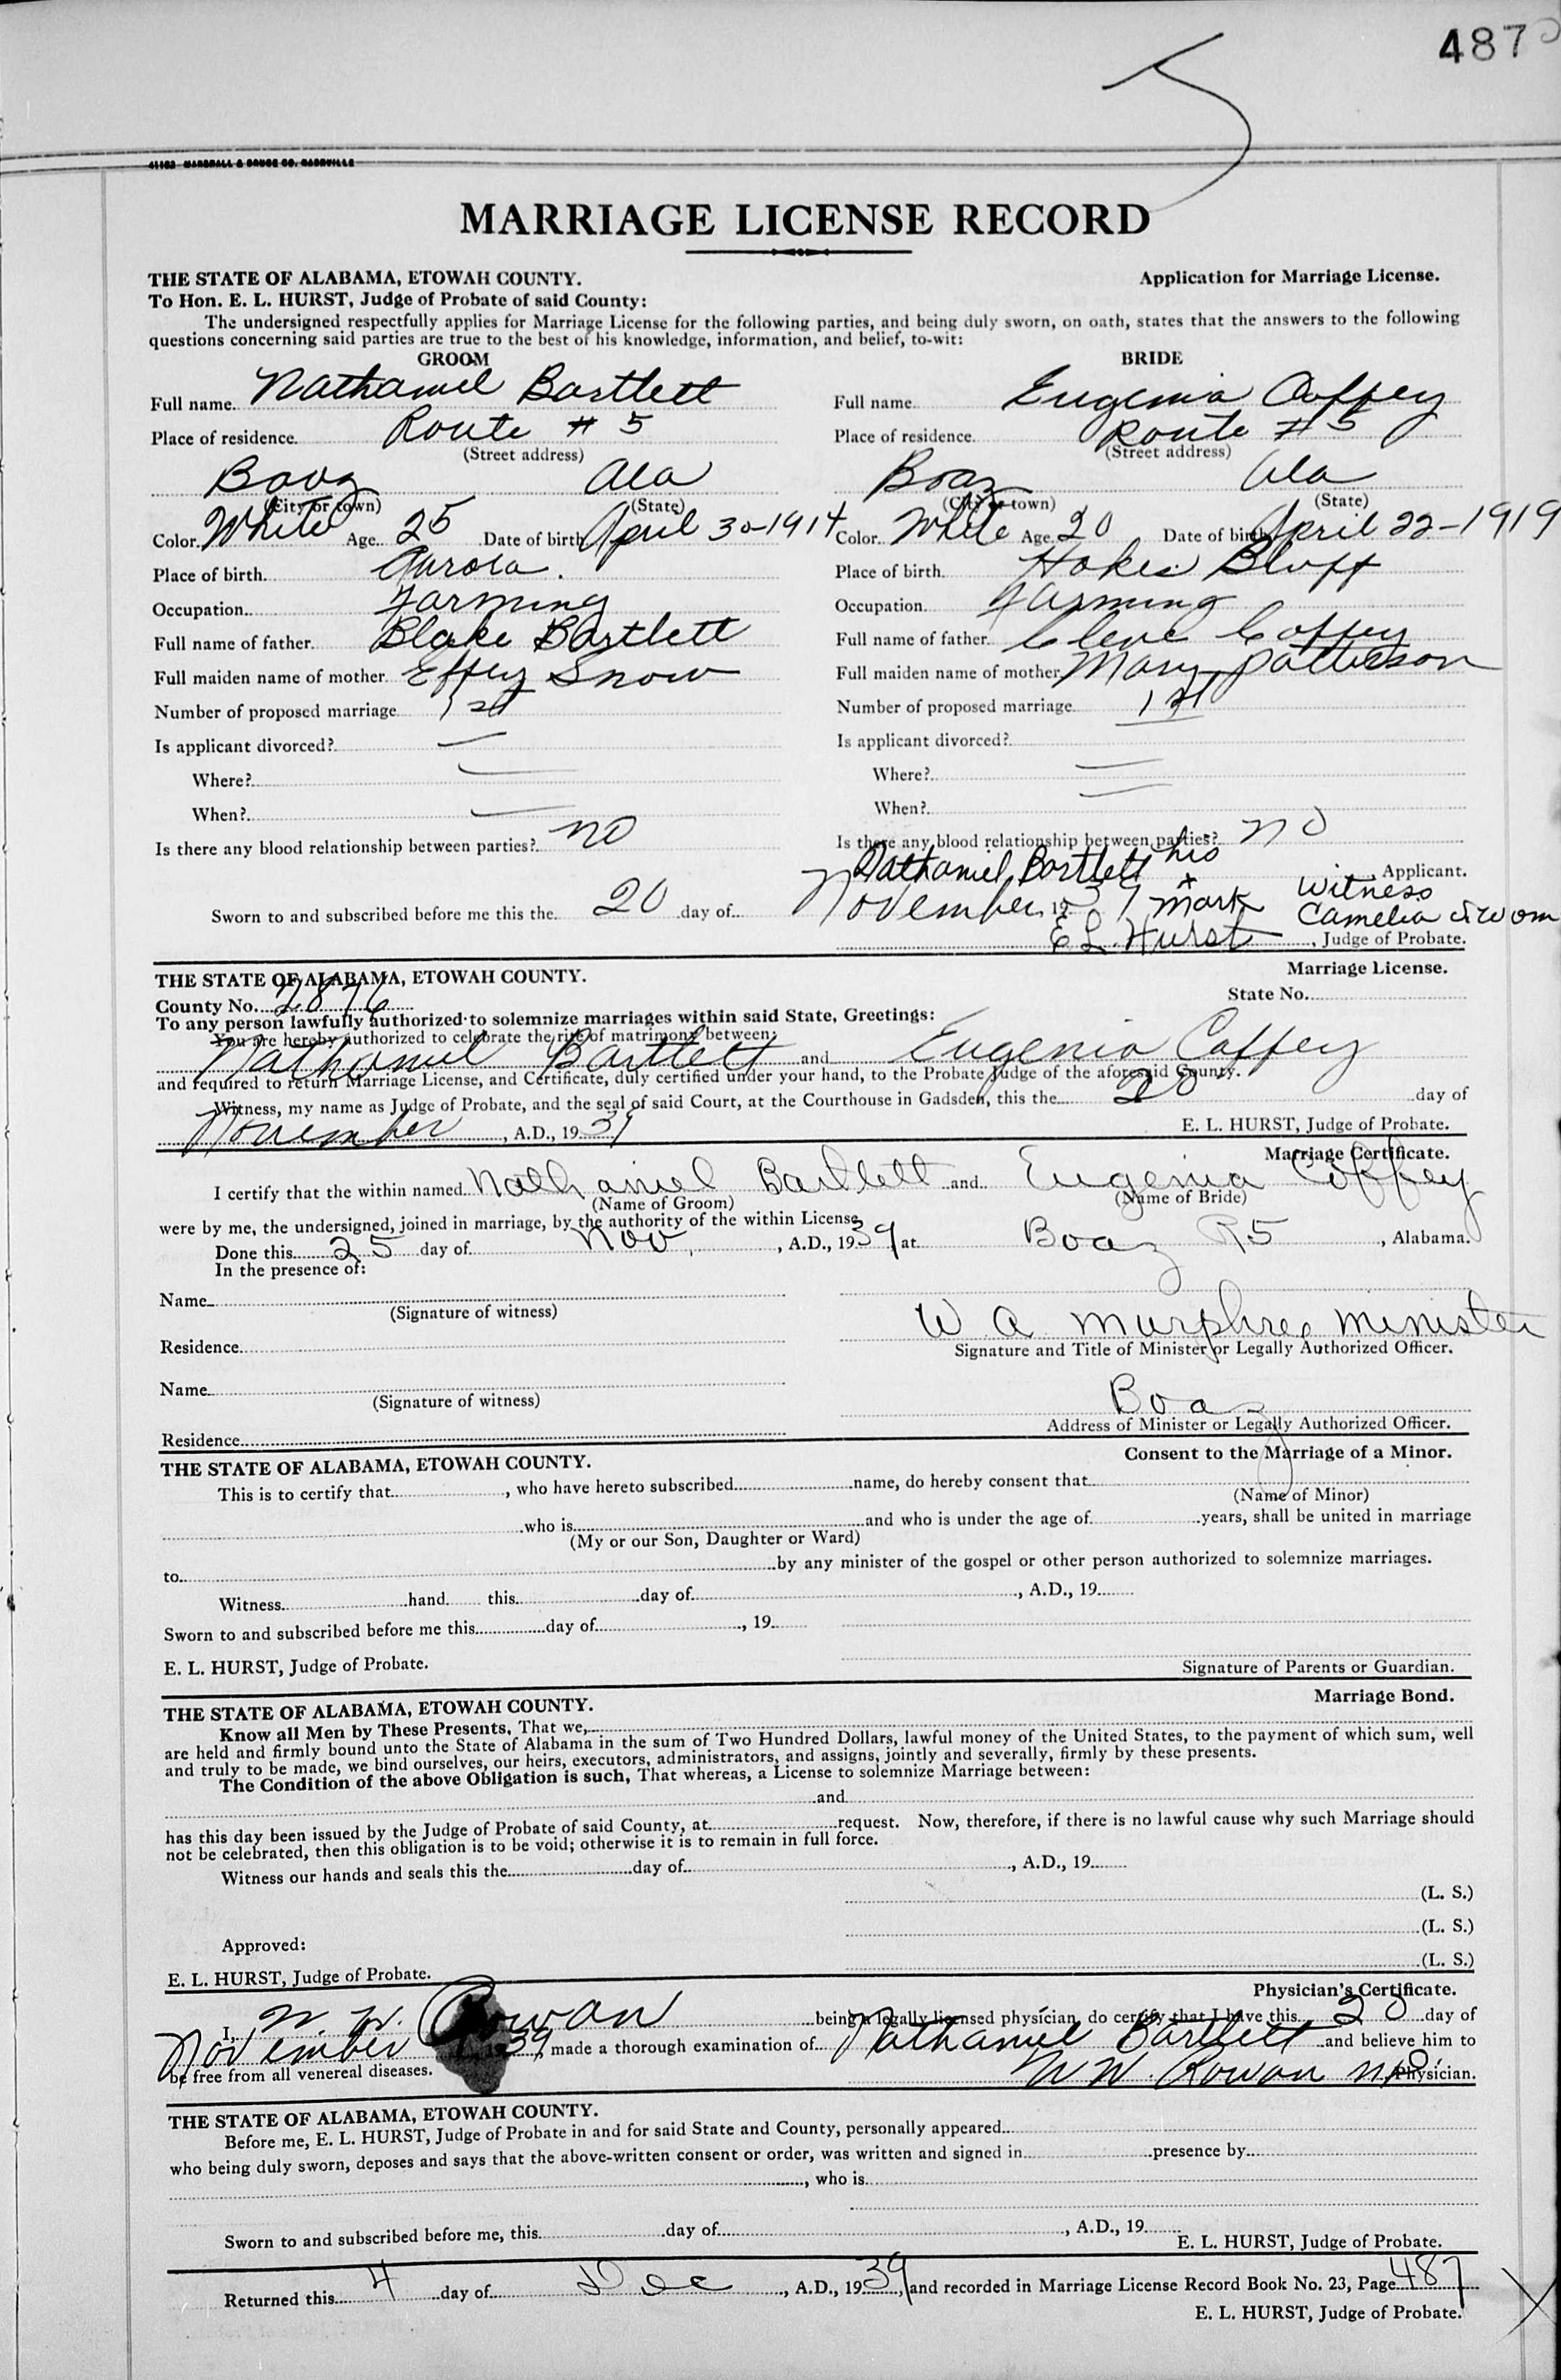 487
41162 MARSHALL & BRUCE CO. NASHVILLE
MARRIAGE LICENSE RECORD
THE STATE OF ALABAMA, ETOWAH COUNTY. Application for Marriage License.
To Hon. E. L. HURST, Judge of Probate of said County:
The undersigned respectfully applies for Marriage License for the following parties, and being duly sworn, on oath, states that the answers to the following
questions concerning said parties are true to the best of his knowledge, information, and belief, to-wit:
GROOM BRIDE
Full name Nathaniel Bartlett Full name Eugenia Coffey
Place of residence Route # 5 Place of residence Route # 5
(Street address) (Street address)
Boaz Ala Boaz Ala
(City or town) (State) (City or town) (State)
Color White Age 25 Date of birth April 30-1914 Color White Age 20 Date of birth April 22-1919
Place of birth Aurora. Place of birth Hokes Bluff
Occupation Farming Occupation Farming
Full name of father Blake Bartlett Full name of father Cleve Coffey
Full maiden name of mother Effey Snow Full maiden name of mother Mary Patterson
Number of proposed marriage 1st Number of proposed marriage 1st
Is applicant divorced? — Is applicant divorced?
Where? — Where? —
When? — When? —
Is there any blood relationship between parties? no Is there any blood relationship between parties? no
Nathaniel Bartlett his x mark Applicant.
Witness
Camelia
Sworn to and subscribed before me this the 20 day of November 1939
E L Hurst, Judge of Probate.
THE STATE OF ALABAMA, ETOWAH COUNTY. Marriage License.
County No. 2876 State No.
To any person lawfully authorized to solemnize marriages within said State, Greetings:
You are hereby authorized to celebrate the rite of matrimony between:
Nathaniel Bartlett and Eugenia Coffey
and required to return Marriage License, and Certificate, duly certified under your hand, to the Probate Judge of the aforesaid County.
Witness, my name as Judge of Probate, and the seal of said Court, at the Courthouse in Gadsden, this the 20 day of
November, A.D., 1939 E. L. HURST, Judge of Probate.
Marriage Certificate.
I certify that the within named Nathaniel Bartlett and Eugenia Coffey
(Name of Groom) (Name of Bride)
were by me, the undersigned, joined in marriage, by the authority of the within License
Done this 25 day of Nov, A.D., 1939 at Boaz R5, Alabama.
In the presence of:
Name
(Signature of witness) W A Murphree Minister
Residence Signature and Title of Minister or Legally Authorized Officer.
Name
(Signature of witness) Boaz
Address of Minister or Legally Authorized Officer.
Residence
THE STATE OF ALABAMA, ETOWAH COUNTY. Consent to the Marriage of a Minor.
This is to certify that, who have hereto subscribed name, do hereby consent that
(Name of Minor)
who is and who is under the age of years, shall be united in marriage
(My or our Son, Daughter or Ward)
to by any minister of the gospel or other person authorized to solemnize marriages.
Witness hand this day of, A.D., 19
Sworn to and subscribed before me this day of, 19
E. L. HURST, Judge of Probate. Signature of Parents or Guardian.
THE STATE OF ALABAMA, ETOWAH COUNTY. Marriage Bond.
Know all Men by These Presents, That we,
are held and firmly bound unto the State of Alabama in the sum of Two Hundred Dollars, lawful money of the United States, to the payment of which sum, well
and truly to be made, we bind ourselves, our heirs, executors, administrators, and assigns, jointly and severally, firmly by these presents.
The Condition of the above Obligation is such, That whereas, a License to solemnize Marriage between:
and
has this day been issued by the Judge of Probate of said County, at request. Now, therefore, if there is no lawful cause why such Marriage should
not be celebrated, then this obligation is to be void; otherwise it is to remain in full force.
Witness our hands and seals this the day of, A.D., 19
(L. S.)
(L. S.)
Approved:
(L. S.)
E. L. HURST, Judge of Probate.
Physician's Certificate.
I, W. W. Rowan being a legally licensed physician, do certify that I have this 20 day of
November 1939, made a thorough examination of Nathaniel Bartlett and believe him to
be free from all venereal diseases. W W Rowan MD. Physician.
THE STATE OF ALABAMA, ETOWAH COUNTY.
Before me, E. L. HURST, Judge of Probate in and for said State and County, personally appeared
who being duly sworn, deposes and says that the above-written consent or order, was written and signed in presence by
, who is
Sworn to and subscribed before me, this day of, A.D., 19
E. L. HURST, Judge of Probate.
Returned this 4 day of Dec, A.D., 1939, and recorded in Marriage License Record Book No. 23, Page 487
E. L. HURST, Judge of Probate.